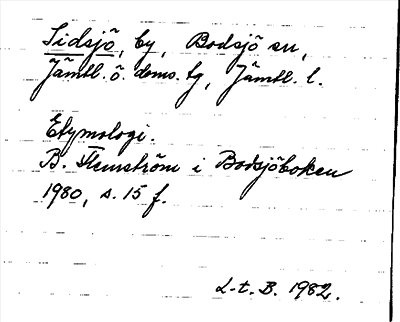 Sidsjö, by, Bodsjö sn,
Jämtl. ö. doms. tg, Jämtl. l.
Etymologi.
B. Flemström i Bodsjöboken
1980, s. 15 f.
L-t. B. 1982.